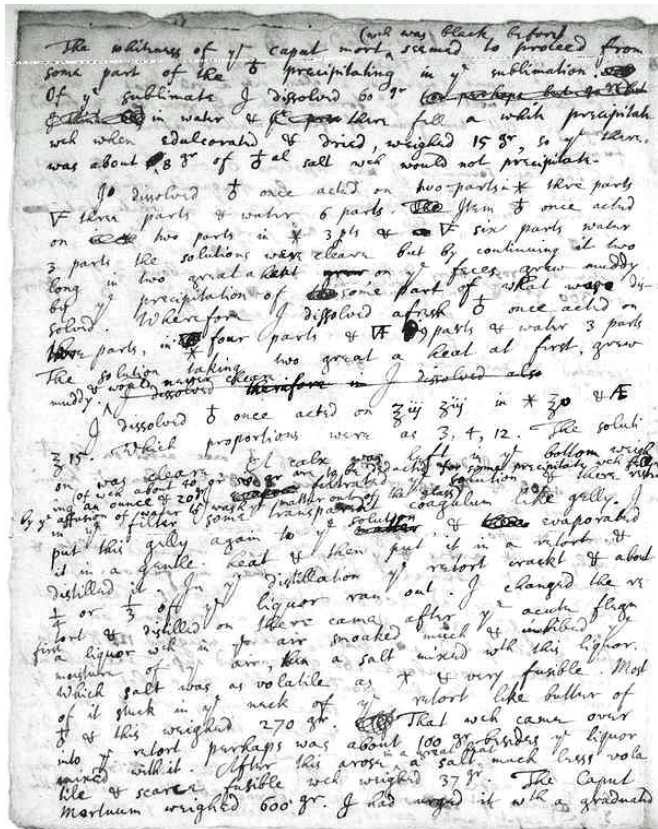 (wch was black before)
The whiteness of ye caput mort, seemed to proceed from
some part of the ♁ precipitating in ye sublimation.
Of ye sublimate I dissolved 60 gr (or perhaps but
in water & there fell a white precipitate
wch when edulcorated & dried, weighed 15 gr, so yt there
was about 8 gr of ♁al salt wch would not precipitate.
I dissolved ♁ once acted on two parts in ✶ three parts
🜆 three parts & water 6 parts. The Item ♁ once acted
on two parts in ✶ 3 pts & 🜆 six parts water
3 parts the solutions were cleare but by continuing it two
long in two great a heat on ye feces grew muddy
by ye precipitation of some part of what was dis-
solved. Wherefore I dissolved afresh ♁ once acted on
three parts, in ✶ four parts & 🜆 9 parts & water 3 parts
The solution taking two great a heat at first, grew
muddy & would never clear. I dissolved therefore in I dissolved also
I dissolved ♁ once acted on ʒiij in ✶ &
ʒ15. Which proportions were as 3, 4, 12. The soluti
on was cleare. calx was left in ye bottom weigh
(of wch about 40 gr or 50 gr are to be deducted for some precipitate wch fell
ing an ounce & 20 gr. I filtrated ye solution & there
by ye affusion of water to wash ye matter out of the glass)
in ye filter some transparent coagulum like gelly. I
put this gelly again to ye solution & evaporated
it in a gentle heat & then put it in a retort &
distilled it. In ye distillation ye retort crackt & about
1/4 or 1/3 of ye liquor ran out. I changed the re
tort & distilled on there came after ye acute flegm
first a liquor wch in ye air smoaked much & imbibed ye
moisture of ye air, then a salt mixed wth this liquor.
Which salt was as volatile as ✶ & very fusible. Most
of it stuck in ye neck of ye retort like butter of
♁ & this weighed 270 gr. That wch came over
into ye retort perhaps was about 100 gr besides ye liquor
mixed with it. After this arose in a great heat a salt much less vola
tile & scarce fusible wch weighed 37 gr. The Caput
Mortuum weighed 600 gr. I had urged it wth a graduated